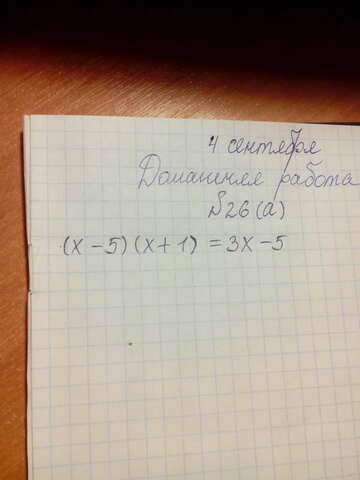 4 сентября
Домашняя работа
№26(а)
(x-5)(x+1)=3x-5